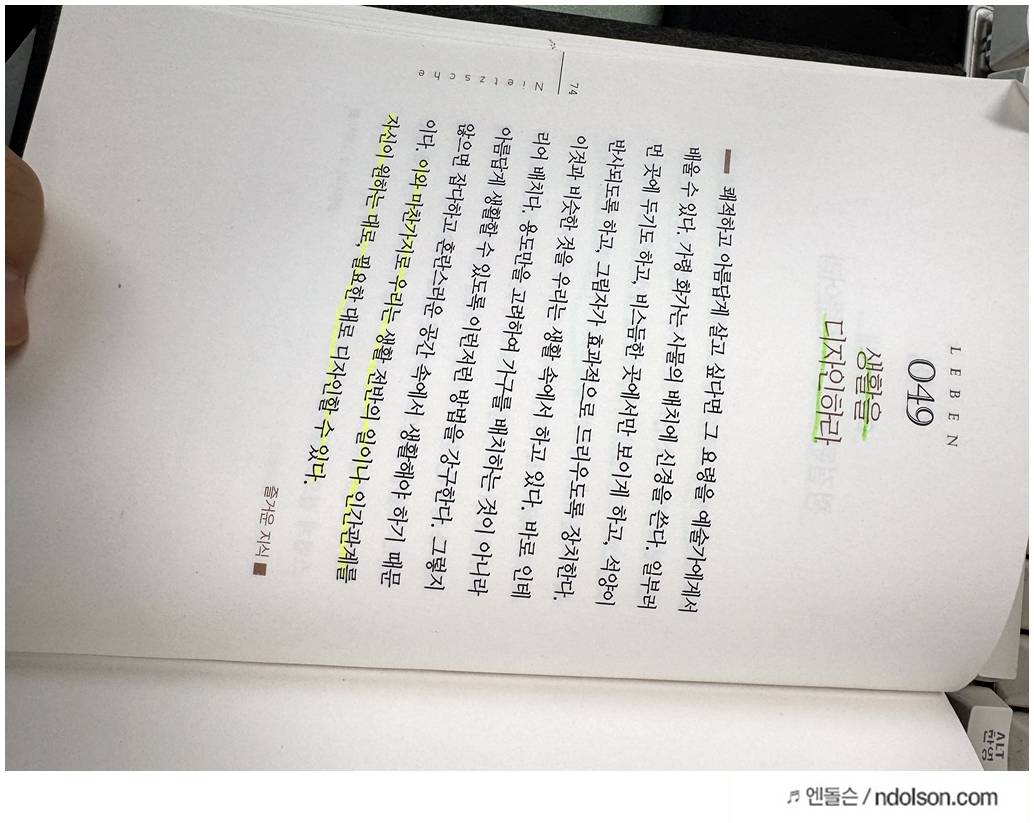 LEBEN
049
생활을
디자인하라
쾌적하고 아름답게 살고 싶다면 그 요령을 예술가에게서
배울 수 있다. 가령 화가는 사물의 배치에 신경을 쓴다. 일부러
먼 곳에 두기도 하고, 비스듬한 곳에서만 보이게 하고, 석양이
반사되도록 하고, 그림자가 효과적으로 드리우도록 장치한다.
이것과 비슷한 것을 우리는 생활 속에서 하고 있다. 바로 인테
리어 배치다. 용도만을 고려하여 가구를 배치하는 것이 아니라
아름답게 생활할 수 있도록 이런저런 방법을 강구한다. 그렇지
않으면 잡다하고 혼란스러운 공간 속에서 생활해야 하기 때문
이다. 이와 마찬가지로 우리는 생활 전반의 일이나 인간관계를
자신이 원하는 대로, 필요한 대로 디자인할 수 있다.
즐거운 지식
74
Nietzsche
ALT
한영
엔돌슨 / ndolson.com